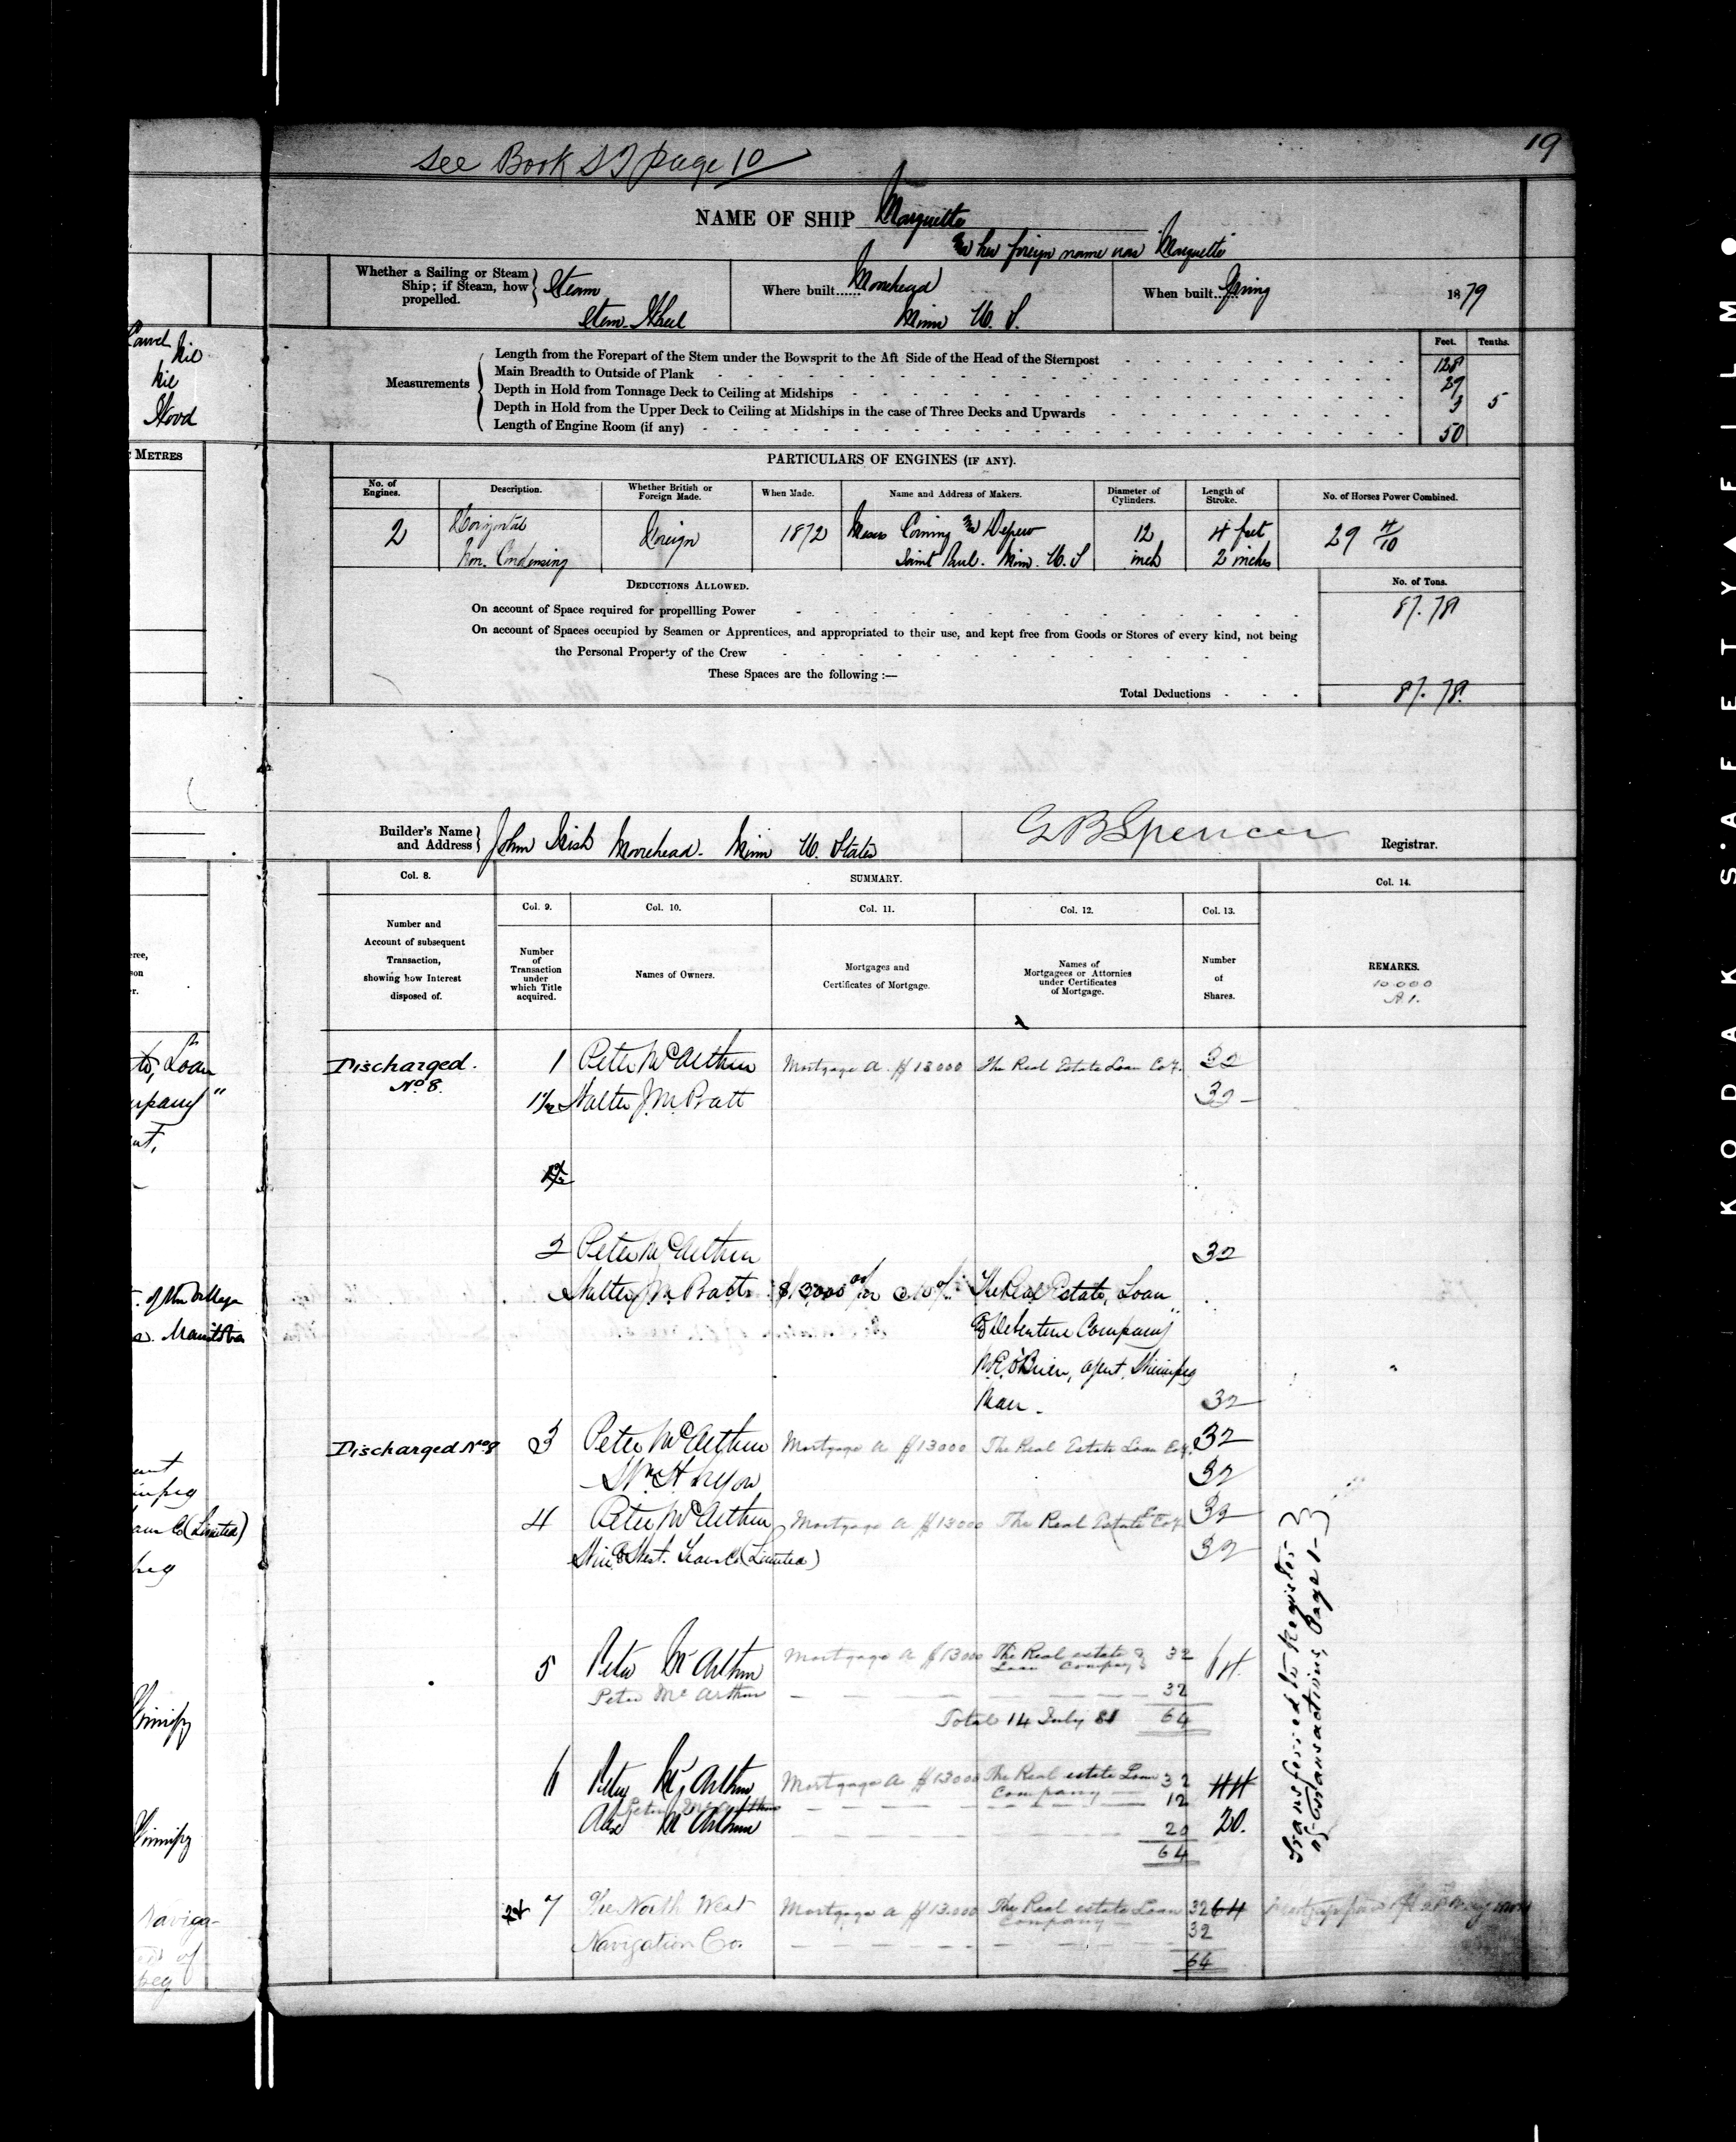 19
See Book page 10
NAME OF SHIP Marquette
& her foreign name was "Marquette"
Whether a Sailing or Steam Ship; if Steam, how propelled. Steam
Stern Wheel
Where built...... Moorhead
Minn U. S.
When built...... Spring 1879
Feet. Tenths.
Measurements
Length from the Forepart of the Stem under the Bowsprit to the Aft Side of the Head of the Sternpost 128
Main Breadth to Outside of Plank 29
Depth in Hold from Tonnage Deck to Ceiling at Midships 3 5
Depth in Hold from the Upper Deck to Ceiling at Midships in the case of Three Decks and Upwards
Length of Engine Room (if any) 50
PARTICULARS OF ENGINES (IF ANY).
No. of Engines. Description. Whether British or Foreign Made. When Made. Name and Address of Makers. Diameter of Cylinders. Length of Stroke. No. of Horses Power Combined.
2 Horizontal Foreign 1872 Messrs Corning & Depew 12 4 feet 29 4/10
Non. Condensing Saint Paul. Minn. U. S inch 2 inches
DEDUCTIONS ALLOWED. No. of Tons.
On account of Space required for propellling Power 87.78
On account of Spaces occupied by Seamen or Apprentices, and appropriated to their use, and kept free from Goods or Stores of every kind, not being
the Personal Property of the Crew
These Spaces are the following :—
Total Deductions 87.78.
Builder's Name and Address John Irish Moorhead. Minn U. States
G B Spencer Registrar.
Col. 8. SUMMARY. Col. 14.
Col. 9. Col. 10. Col. 11. Col. 12. Col. 13.
Number and Account of subsequent Transaction, showing how Interest disposed of.
Number of Transaction under which Title acquired.
Names of Owners.
Mortgages and Certificates of Mortgage.
Names of Mortgagees or Attornies under Certificates of Mortgage.
Number of Shares.
REMARKS.
10.000
A.1.
Discharged. 1 Peter McArthur Mortgage A $13000 The Real Estate Loan Coy. 32
No 8. 1½ Walter J. M. Pratt 32
2 Peter McArthur 32
Walter J. M. Pratt $13,000 @ 10% The Real Estate, Loan
& Debenture Company"
O'Brien, agent, Winnipeg
Man. 32
Discharged No 8 3 Peter McArthur Mortgage A $13000 The Real Estate Loan Coy. 32
Wm H Lyon 32
4 Peter McArthur Mortgage A $13000 The Real Estate Coy. 32
Win & West. Co (Limited) 32
5 Peter McArthur Mortgage A $13000 The Real estate & Loan Company 32 64
Peter McArthur 32
Total 14 July 81 64
6 Peter McArthur Mortgage A $13000 The Real estate Loan Company 32 44
Peter McArthur 12
Alex McArthur 20 20.
64
7 The North West Mortgage A $13.000 The Real estate Loan Company 32 64
Navigation Co. 32
64
Transferred to Register
of Transactions, Page 1-3
Carvel
Nil
Nil
Wood
METRES
Loan
Manitoba
(Limited)
Winnipeg
Winnipeg
Naviga-
KODAK S'AFETY FILM